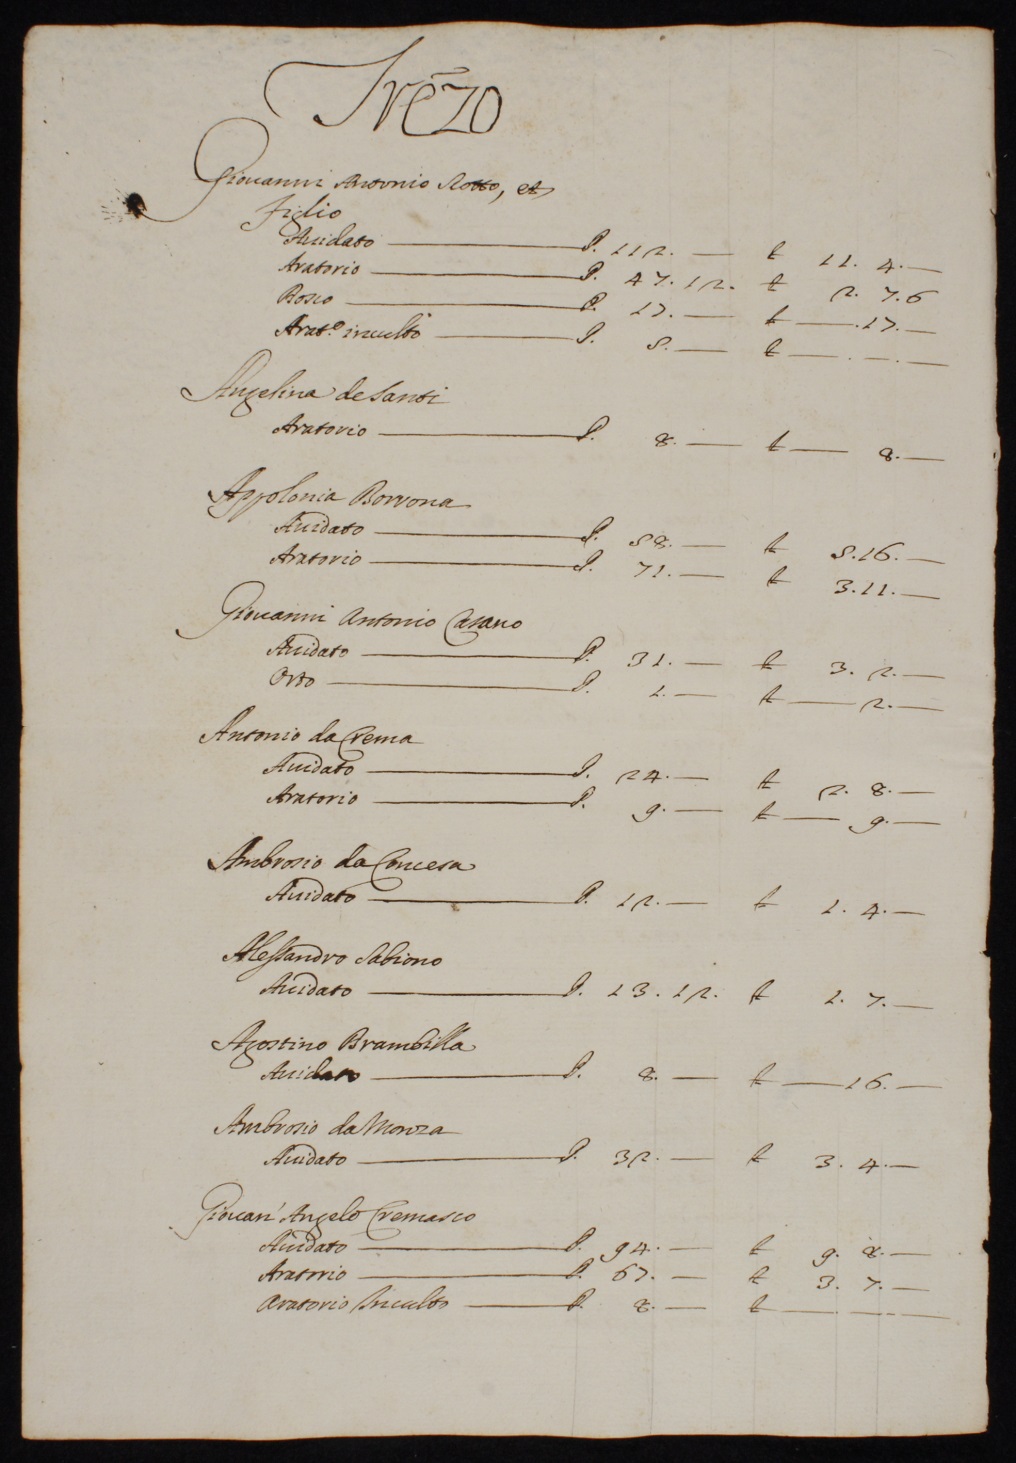 Trezo
Giouanni Antonio Rotto, et
figlio
Auidato — P. 112. — £ 11. 4. —
Aratorio — P. 47. 12. £ 2. 7. 6
Bosco — P. 17. — £ — .17. —
Arat.º incultº — P. 5. — £ — . — . —
Angelina de Santi
Aratorio — P. 8. — £ — 8. —
Appolonia Borrona
Auidato — P. 58. — £ 5. 16. —
Aratorio — P. 71. — £ 3. 11. —
Giouanni Antonio Casano
Auidato — P. 31. — £ 3. 2. —
Orto — P. 1. — £ — 2. —
Antonio da Crema
Auidato — P. 24. — £ 2. 8. —
Aratorio — P. 9. — £ — 9. —
Ambrosio da Concesa
Auidato — P. 12. — £ 1. 4. —
Alessandro Sabiono
Auidato — P. 13. 12. £ 1. 7. —
Agostino Brambilla
Auidato — P. 8. — £ — 16. —
Ambrosio da Monza
Auidato — P. 32. — £ 3. 4. —
Giouan' Angelo Cremasco
Auidato — P. 94. — £ 9. 8. —
Aratorio — P. 67. — £ 3. 7. —
Aratorio Inculto — P. 8. — £ — — —